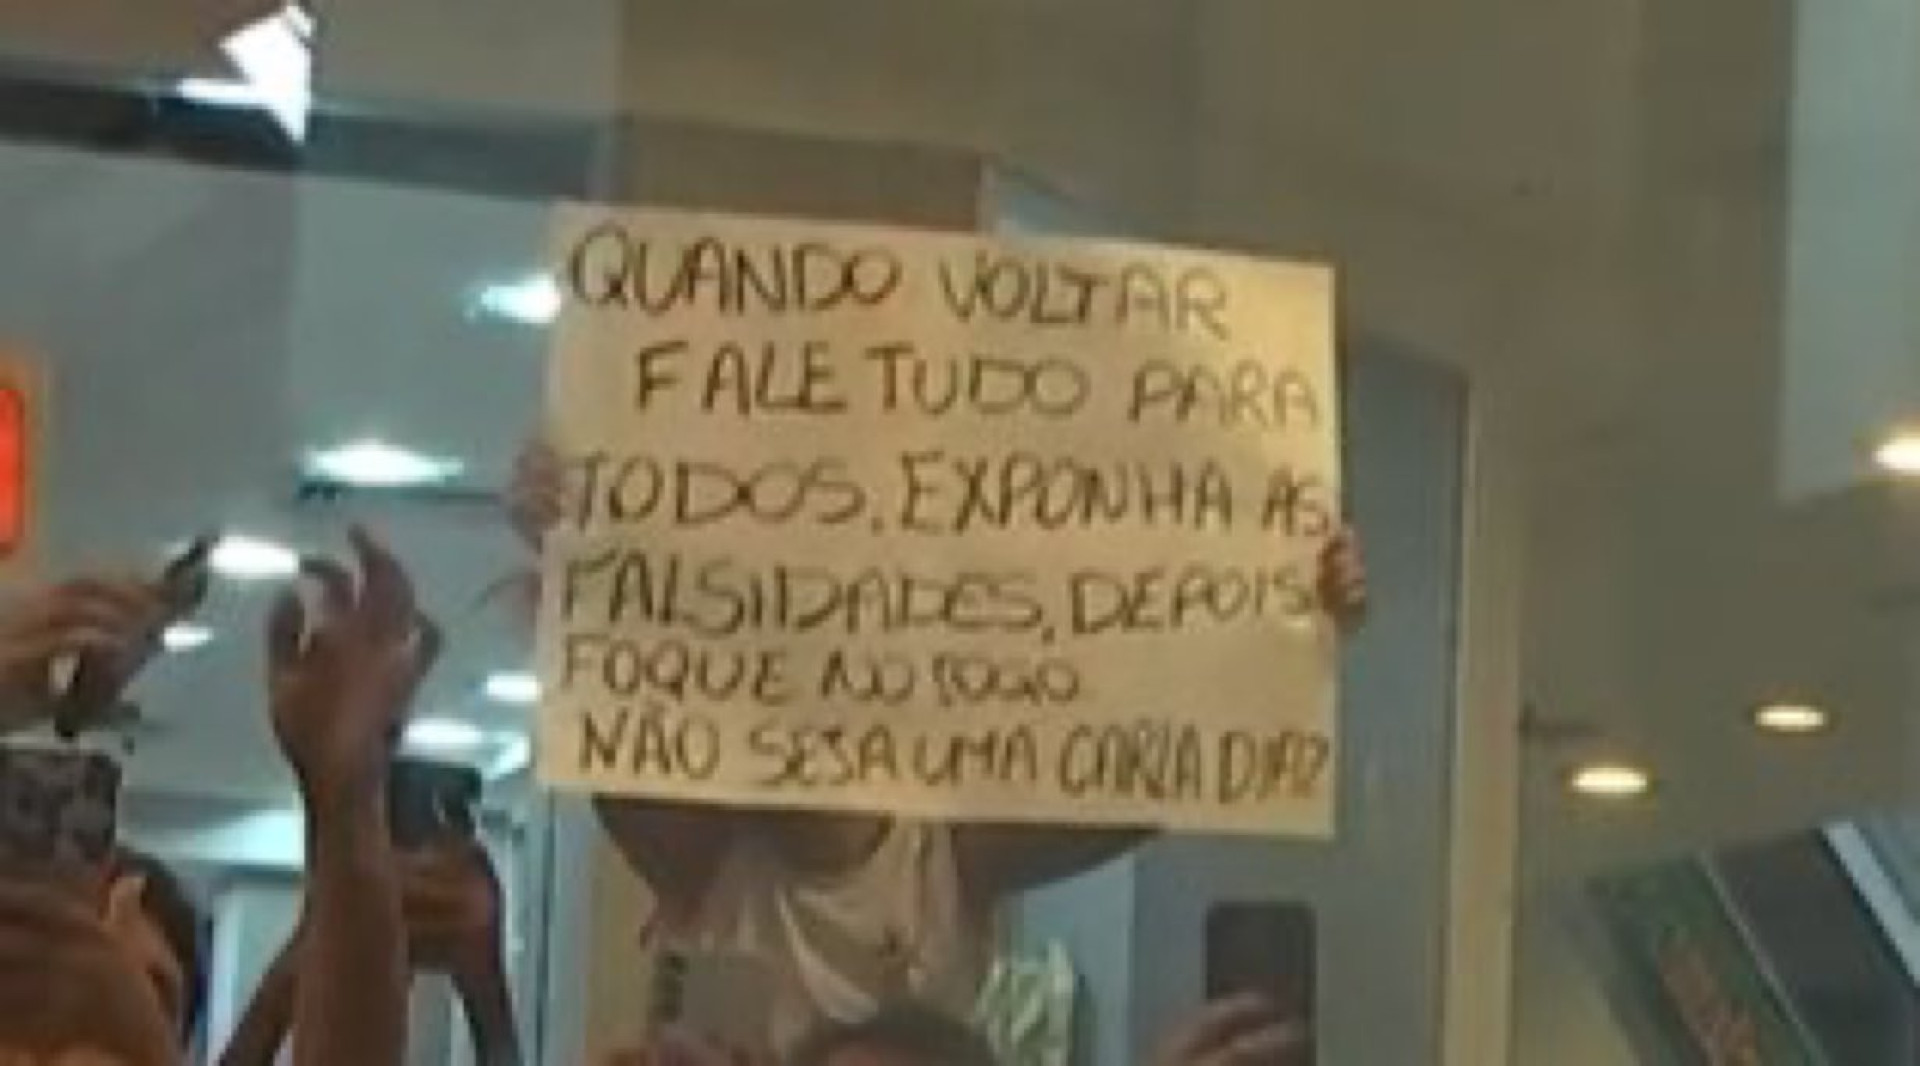 QUANDO VOLTAR
FALE TUDO PARA
TODOS. EXPONHA AS
FALSIDADES, DEPOIS
FOQUE NO JOGO
NÃO SEJA UMA CARLA DIAZ